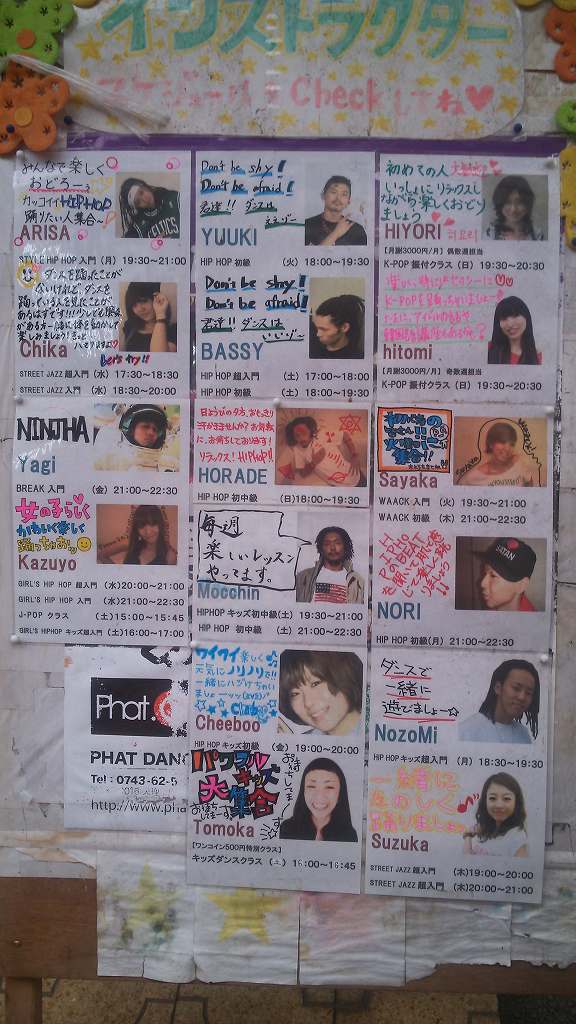 インストラクター
スケジュール Checkしてね♥
みんなで楽しく
おどろー♪
カッコイイHIPHOP
踊りたい人集合〜!
ARISA
STYLE HIP HOP 入門 (月) 19:30~21:00
Chika
Let's try!!
STREET JAZZ 超入門 (水) 17:30~18:30
STREET JAZZ 入門 (水) 18:30~20:00
NINJHA
Yagi
BREAK 入門 (金) 21:00~22:30
女の子らしく
かわいく楽しく
踊っちゃおッ
Kazuyo
GIRL'S HIP HOP 超入門 (水)20:00~21:00
GIRL'S HIP HOP 入門 (水)21:00~22:30
J-POP クラス (土)15:00~15:45
GIRL'S HIPHOP キッズ超入門 (土)16:00~17:00
Phat.
PHAT DANC
Tel : 0743-62-
http://www.pha
Don't be shy!
Don't be afraid!
君達!! ダンスは
ええゾ〜
YUUKI
HIP HOP 初級 (火) 18:00~19:30
Don't be shy!
Don't be afraid!
君達!! ダンスは
いいゾ〜
BASSY
HIP HOP 超入門 (土) 17:00~18:00
HIP HOP 初級 (土) 18:00~19:30
日ようびの夕方、おもいっきり
汗かきませんか? お気軽
に、お待ちしております!
リラックス! HIPHOP!!
HORADE
HIP HOP 初中級 (日)18:00~19:30
毎週
楽しいレッスン
やってます。
Mocchin
HIPHOP キッズ初中級 (土) 19:30~21:00
HIP HOP 初中級 (土) 21:00~22:30
ワイワイ楽しく
元気にノリノリで!!
一緒にハジけちゃい
ましょーッッ
Cheeboo
HIP HOP キッズ初級 (金) 19:00~20:00
パワフル
キッズ
大集合
お待ちしてまーす
Tomoka
[ワンコイン500円特別クラス]
キッズダンスクラス (土) 16:00~16:45
初めての人大歓迎
いっしょにリラックスし
ながら楽しくおどり
ましょう
HIYORI 히요리
[月謝3000円/月] 偶数週担当
K-POP 振付クラス (日) 19:30~20:30
hitomi
[月謝3000円/月] 奇数週担当
K-POP 振付クラス (日) 19:30~20:30
Sayaka
WAACK 入門 (火) 19:30~21:00
WAACK 初級 (木) 21:00~22:30
SATAN
NORI
HIP HOP 初級(月) 21:00~22:30
ダンスで
一緒に
遊びましょー☆
NozoMi
HIP HOP キッズ超入門 (月) 18:30~19:30
一緒に
踊りましょ
Suzuka
STREET JAZZ 超入門 (木)19:00~20:00
STREET JAZZ 超入門 (木)20:00~21:00